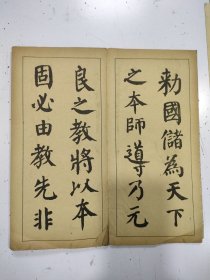 勅國儲為天下
之本師導乃元
良之教將以本
固必由教先非